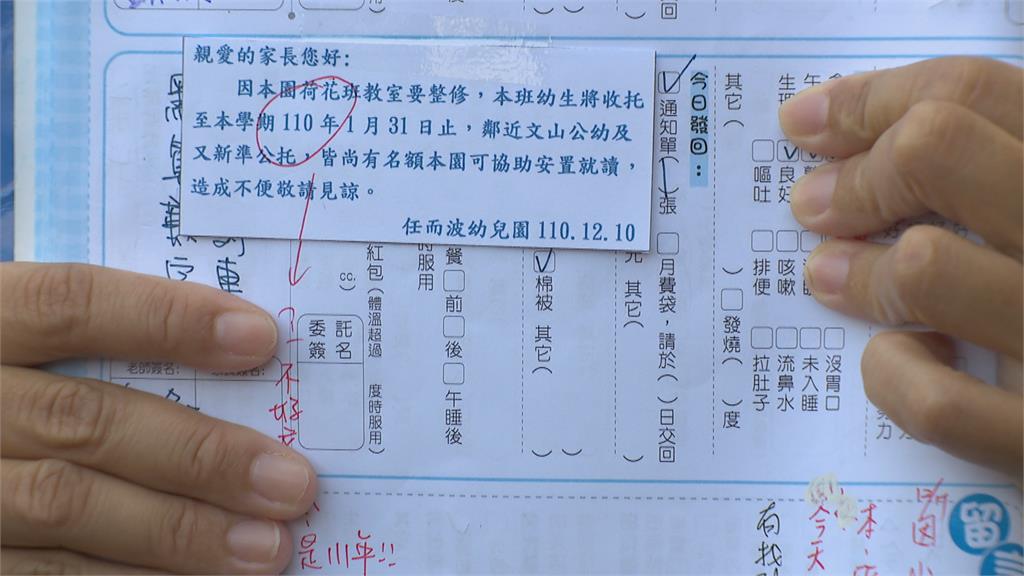 親愛的家長您好:
因本園荷花班教室要整修，本班幼生將收托
至本學期110年1月31日止，鄰近文山公幼及
又新準公托，皆尚有名額本園可協助安置就讀，
造成不便敬請見諒。
任而波幼兒園110.12.10
今日發回：
通知單( )張
月費袋，請於( )日交回
其它( )
嘔吐
良好
排便
咳嗽
發燒( )度
拉肚子
流鼻水
未入睡
沒胃口
棉被 其它( )
其它( )
餐 前 後 午睡後
時服用
紅包(體溫超過 度時服用)
cc.)
委託
簽名
老師簽名:
不好
是111年!!
有找
今天
本
留